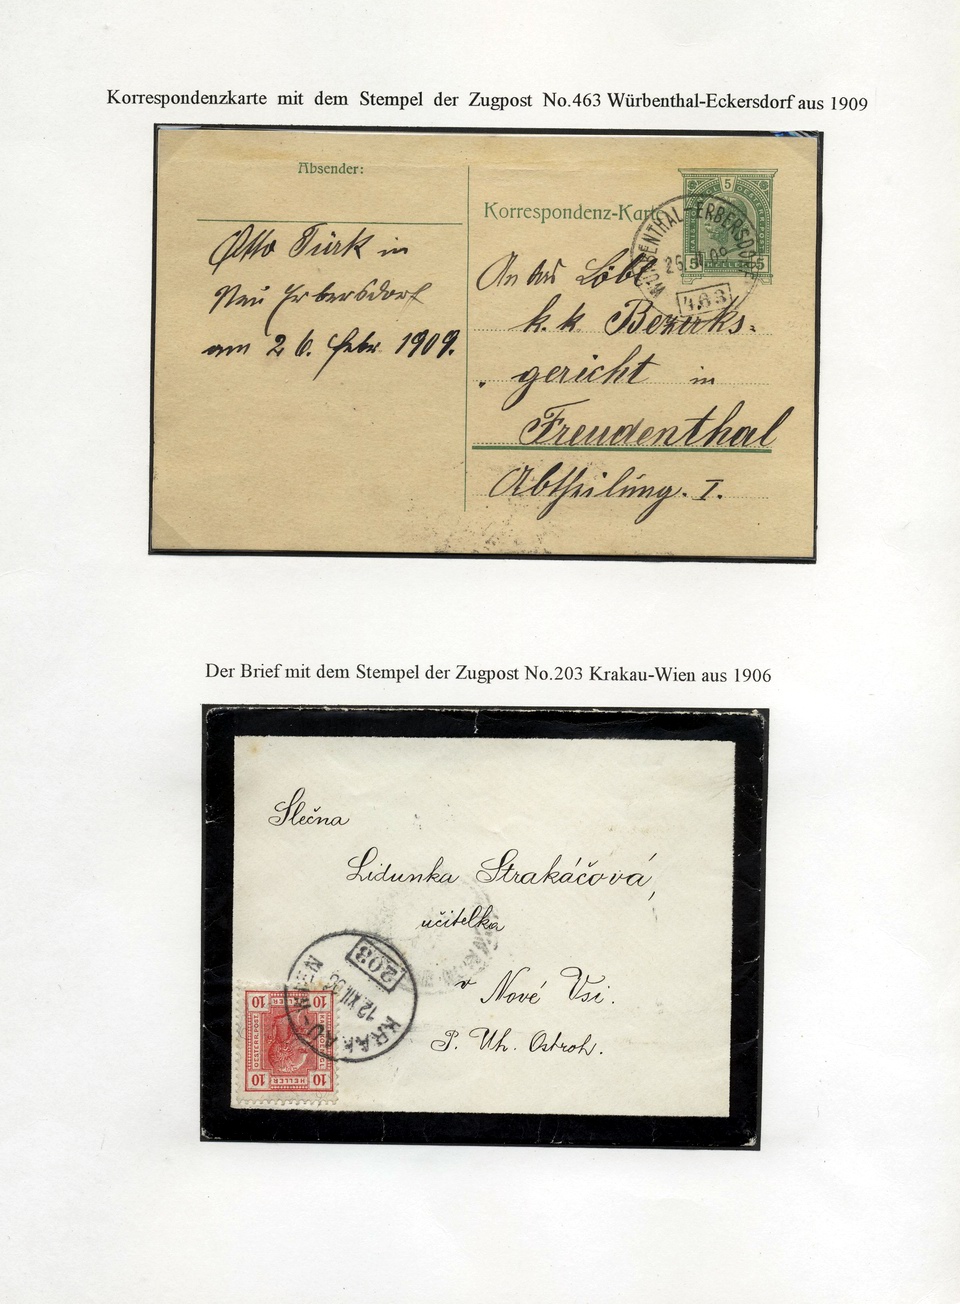 Korrespondenzkarte mit dem Stempel der Zugpost No.463 Würbenthal-Eckersdorf aus 1909
Absender:
Otto Türk in
Neu Erbersdorf
am 26. Febr. 1909.
Korrespondenz-Karte
5
5 HELLER 5
WÜRBENTHAL-ERBERSDORF
463
An das Löbl.
k. k. Bezirks-
gericht in
Freudenthal
Abtheilung. I.
Der Brief mit dem Stempel der Zugpost No.203 Krakau-Wien aus 1906
Slečna
Lidunka Strakáčová,
učitelka
v Nové Vsi.
P. Uh. Ostroh.
KRAKAU-WIEN
12 XII 06
203
10 10
OESTERR. POST
HELLER
10 10